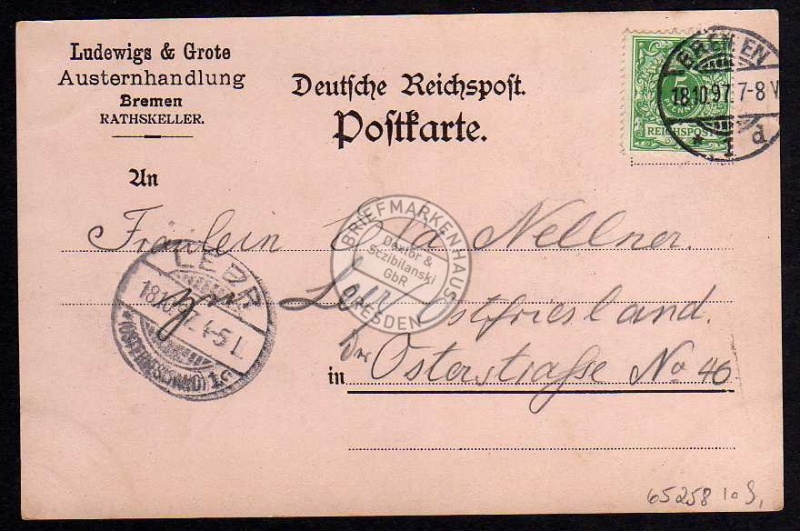 Ludewigs & Grote
Austernhandlung
Bremen
RATHSKELLER.
Deutsche Reichspost.
Postkarte.
REICHSPOST
BREMEN
18.10.97. 7-8 V.
d
An
Fräulein Nellner.
BRIEFMARKENHAUS
Osztór &
Sczibilanski
GbR
DRESDEN
LEER
18.10.97. 4-5
(OSTFRIESLAND)
Leer Ostfriesland.
in Osterstraße No 46
65258